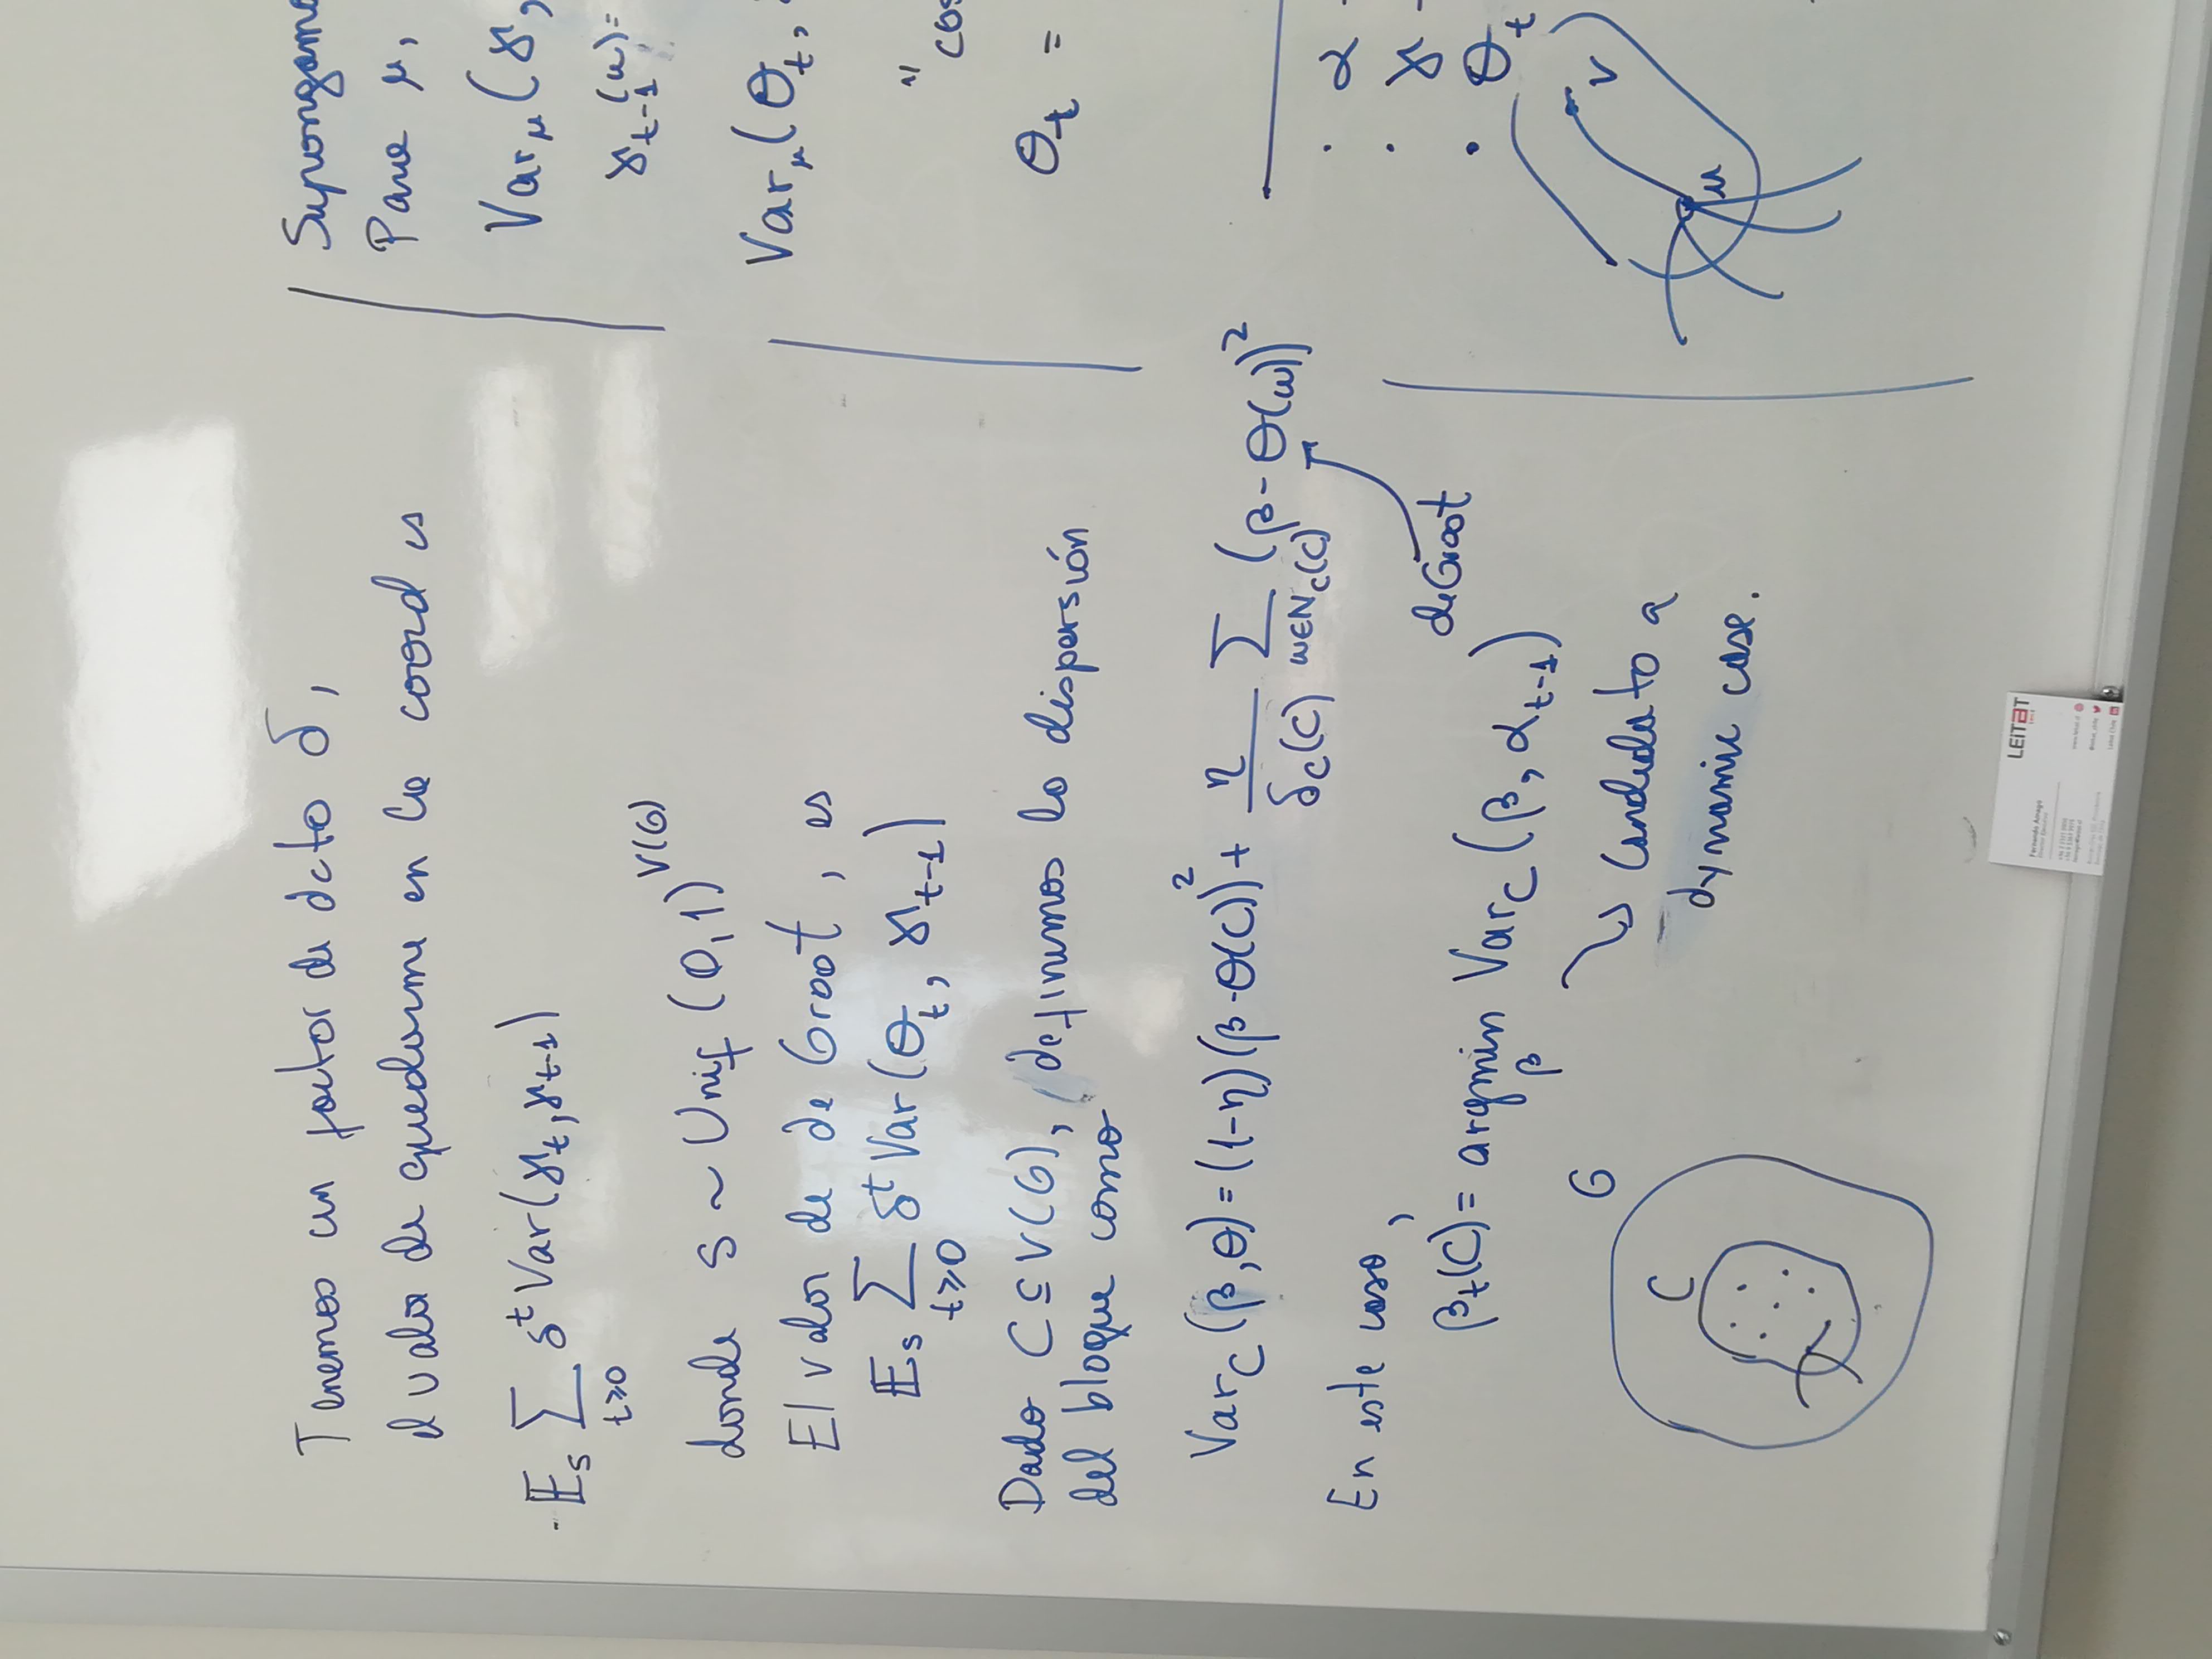 Tenemos un factor de dcto δ,
el valor de quedarme en la coord es
E_s Σ_{t≥0} δ^t Var(γ_t, γ_{t-1})
donde s ~ Unif (0,1)^{V(G)}
El valor de de Groot, es
E_s Σ_{t≥0} δ^t Var(θ_t, γ_{t-1})
Dado C ⊆ V(G), definimos la dispersión
del bloque como
Var_C (β,θ) = (1-η)(β-θ(C))² + η/δ_C(C) Σ_{w∈N_C(C)} (β-θ(w))²
deGroot
En este caso,
β_t(C) = argmin_β Var_C (β, α_{t-1})
Candidato a
dynamic case.
G
C
Supongamo
Para μ,
Var_μ (γ,
γ_{t-1}(u) =
Var_μ (θ_t,
"
cos
θ_t =
· α -
· γ -
· θ_t
v
u
LEITAT
Fernando Amago